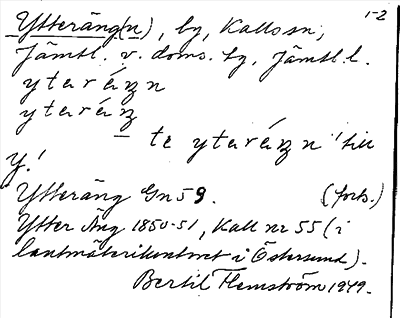 1-2
Ytteräng(n), by, Kalls sn,
Jämtl. v. doms. tg, Jämtl. l.
yteráŋn
yteráŋ
– te yteráŋn 'till
Y.'
Ytteräng Gn 59. (forts.)
Ytter Äng 1850-51, Kall nr 55 (i
lantmäterikontoret i Östersund).
Bertil Flemström 1949.